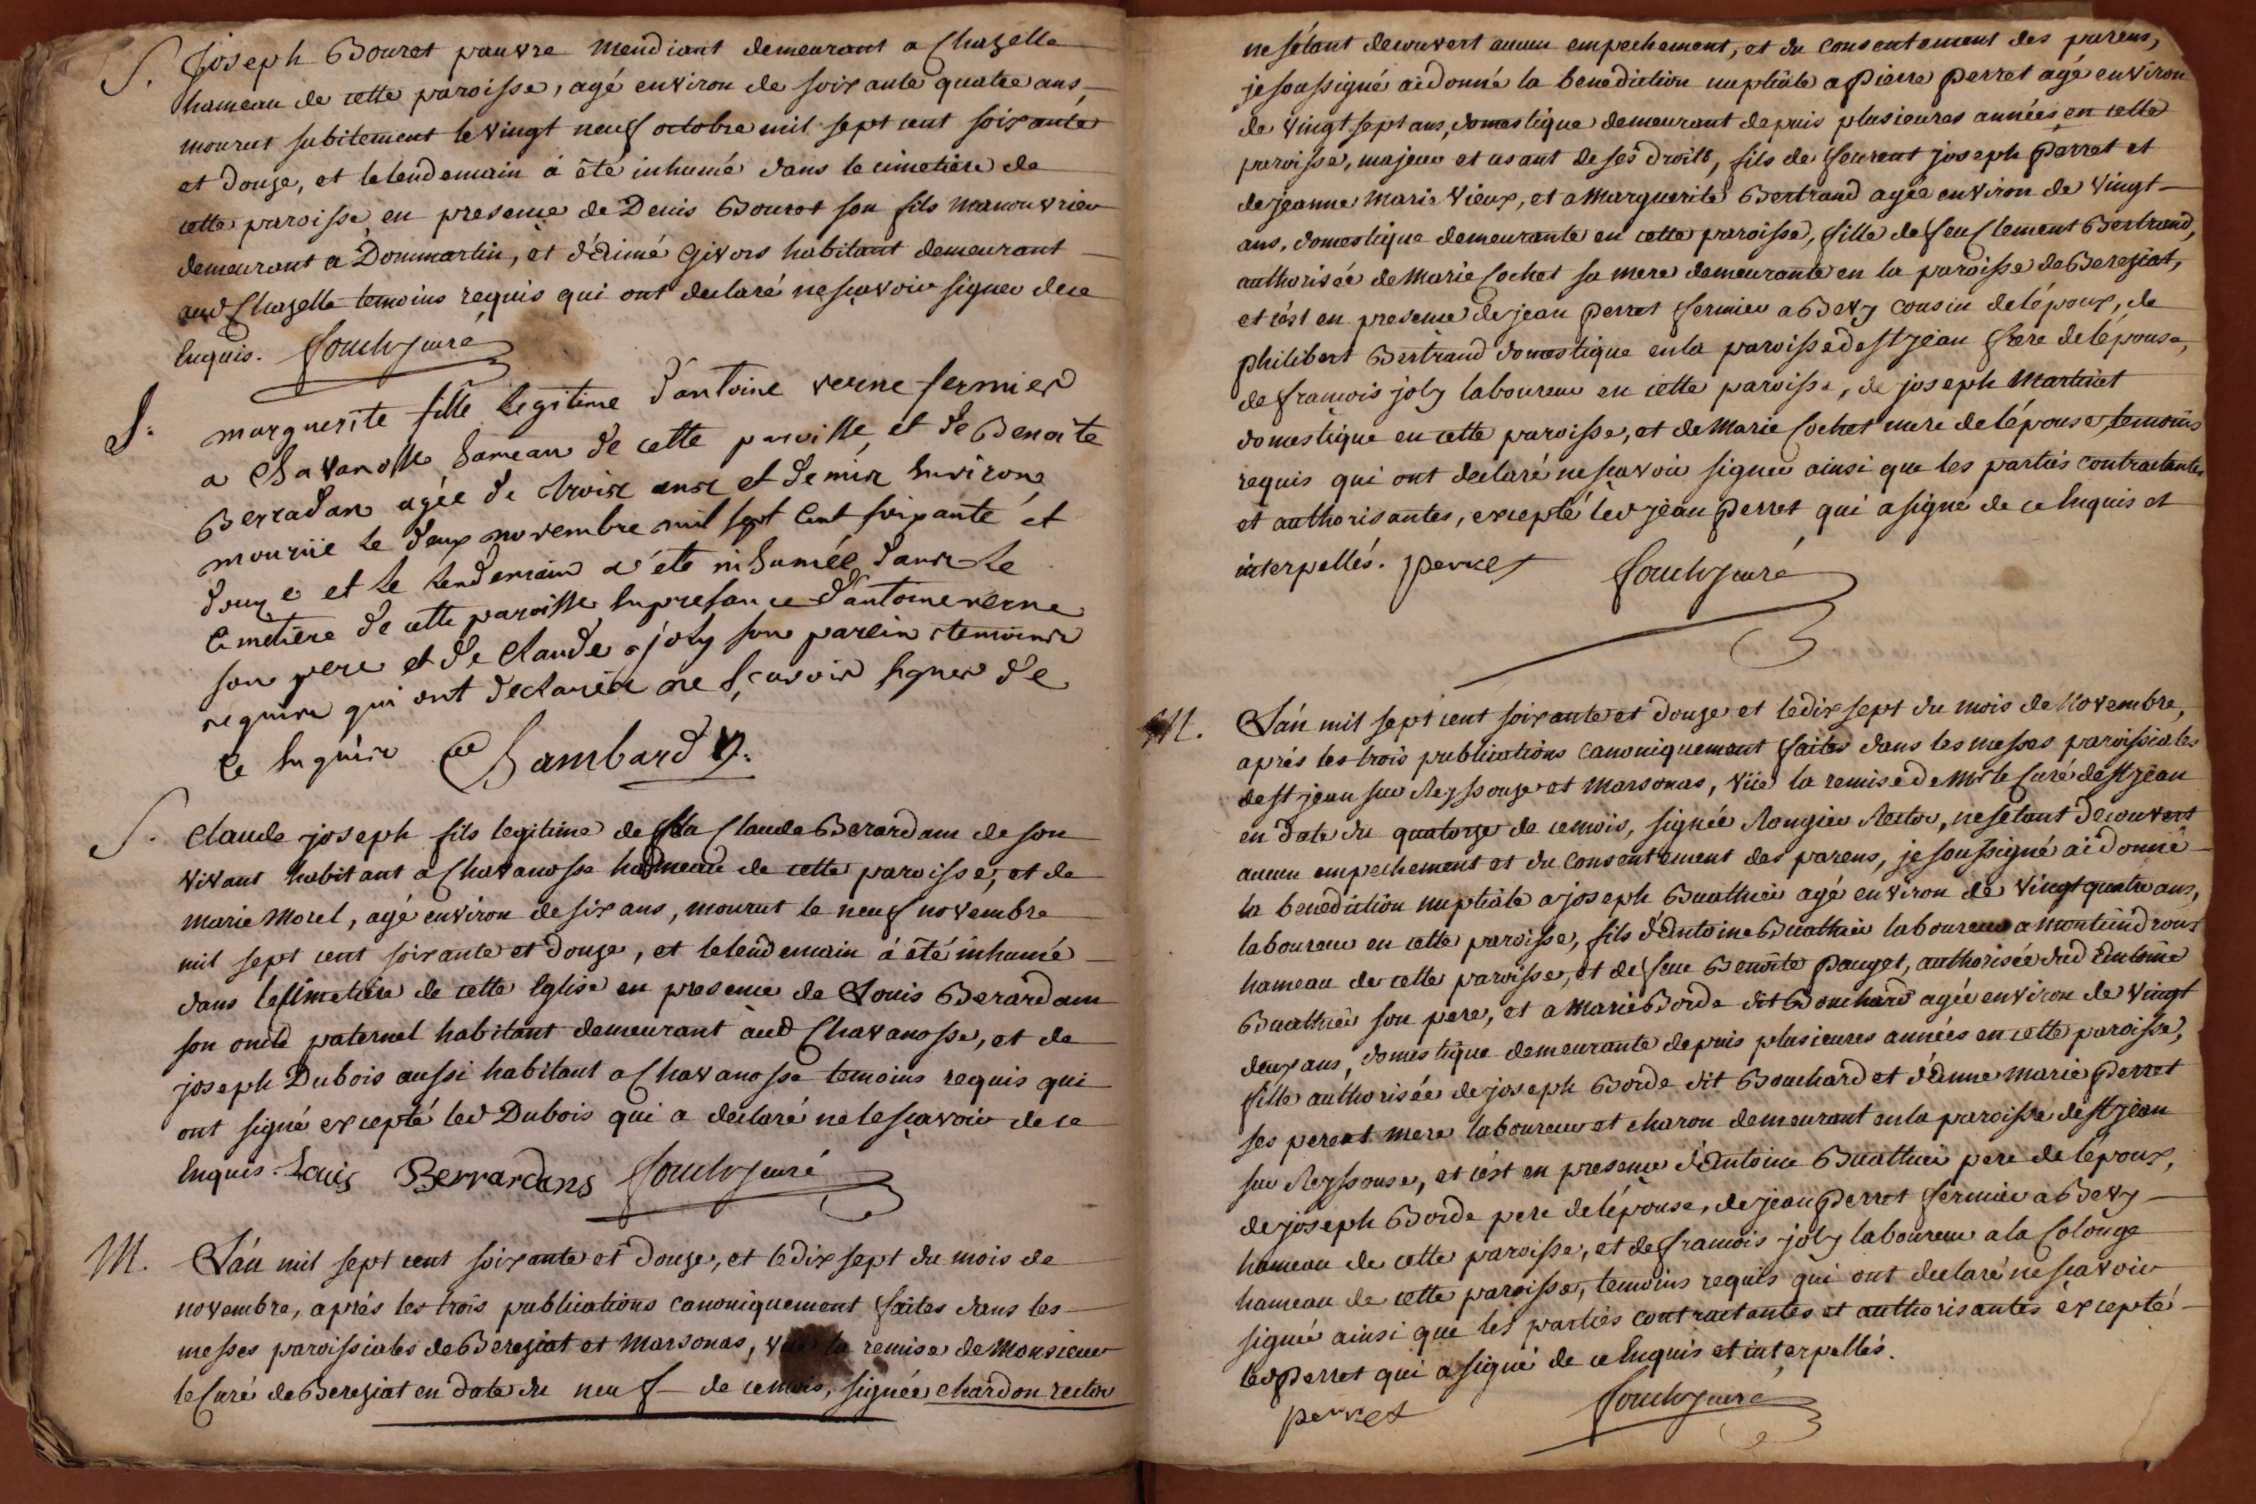 S. joseph Bouret pauvre mendiant demeurant a Chazelle
hameau de cette paroisse, agé environ de soixante quatre ans,
mourut subitement le vingt neuf octobre mil sept cent soixante
et douze, et le lendemain à été inhumé dans le cimetiere de
cette paroisse, en presence de Denis Bouret son fils manouvrier
demeurant a Dommartin, et d'édimé Givors habitant demeurant
aud Chazelle temoins requis qui ont declaré ne sçavoir signer de ce
Enquis. curé
S. marguerite fille Legitime d'antoine verne fermier
a Chavanosse hameau de cette paroisse et de Benoite
Berradan agée de trois ans et demis Environ,
mourüe le deux novembre mil sept Cent soixante et
douze et le Lendemain a été inhumée dans le
Cimetière de cette paroisse En presance d'antoine verne
son pere et de Claude joly son parein temoins
requis qui ont declarés ne Sçavoir signer de
ce Enquis Chambard v.
S. Claude joseph fils legitime de Claude Berardam de son
vivant habitant a Chavanosse hameau de cette paroisse, et de
marie Morel, agé environ de six ans, mourut le neuf novembre
mil sept cent soixante et douze, et le lendemain à été inhumé
dans le Cimetiere de cette Eglise en presence de Louis Berardam
son oncle paternel habitant demeurant aud Chavanosse, et de
joseph Dubois aussi habitant a Chavanosse temoins requis qui
ont signé excepté led Dubois qui a declaré ne le sçavoir de ce
Enquis. Louis Berrardans curé
M. L'an mil sept cent soixante et douze, et le dix sept du mois de
novembre, aprés les trois publications canoniquement faites dans les
messes paroissiales de Bereziat et Marsonas, vüe la remise de Monsieur
le Curé de Bereziat en date du neuf de ce mois, signée chardon rector
ne s'étant decouvert aucun empechement, et du consentement des parens,
je soussigné ai donné la benediction nuptiale a Pierre Perret agé environ
de vingt sept ans, domestique demeurant depuis plusieures années en cette
paroisse, majeur et usant de ses droits, fils de joseph Perret et
de jeanne Marie Vieux, et a Marguerite Bertrand agée environ de vingt
ans, domestique demeurante en cette paroisse, fille de feu Clement Bertrand,
authorisée de Marie Cochet sa mere demeurante en la paroisse de Bereziat,
et c'ést en presence de jean Perret fermier a Bevy cousin de l'époux, de
philibert Bertrand domestique en la paroisse de st jean frere de l'épouse,
de francois joly laboureur en cette paroisse, de joseph Martinet
domestique en cette paroisse, et de Marie Cochet mere de l'épouse, temoins
requis qui ont declaré ne sçavoir signer ainsi que les parties contractantes
et authorisantes, excepté led jean Perret qui a signé de ce Enquis et
interpellés. perret curé
M. L'an mil sept cent soixante et douze et le dix sept du mois de Novembre,
aprés les trois publications canoniquement faites dans les messes paroissiales
de st jean sur Reyssouze et Marsonas, vüe la remise de Mr le Curé de st jean
en date du quatorze de ce mois, signée Rongier Rector, ne s'étant decouvert
aucun empechement et du consentement des parens, je soussigné ai donné
la benediction nuptiale a joseph Buathier agé environ de vingt quatre ans,
laboureur en cette paroisse, fils d'Antoine Buathier laboureur a montaindroux
hameau de cette paroisse, et de feue Benoite Pauget, authorisée dud Antoine
Buathier son pere, et a Marie Borde dit Bouchard agée environ de vingt
deux ans, domestique demeurante depuis plusieures années en cette paroisse,
fille authorisée de joseph Borde dit Bouchard et d'anne marie Perret
ses pere et mere laboureur et charon demeurant en la paroisse de st jean
sur Reyssouse, et c'ést en presence d'Antoine Buathier pere de l'époux,
de joseph Borde pere de l'épouse, de jean Perret fermier a Bevy
hameau de cette paroisse, et de francois joly laboureur a la Colonge
hameau de cette paroisse, temoins requis qui ont declaré ne sçavoir
signer ainsi que les parties contractantes et authorisantes excepté
led Perret qui a signé de ce Enquis et interpellés.
perret curé